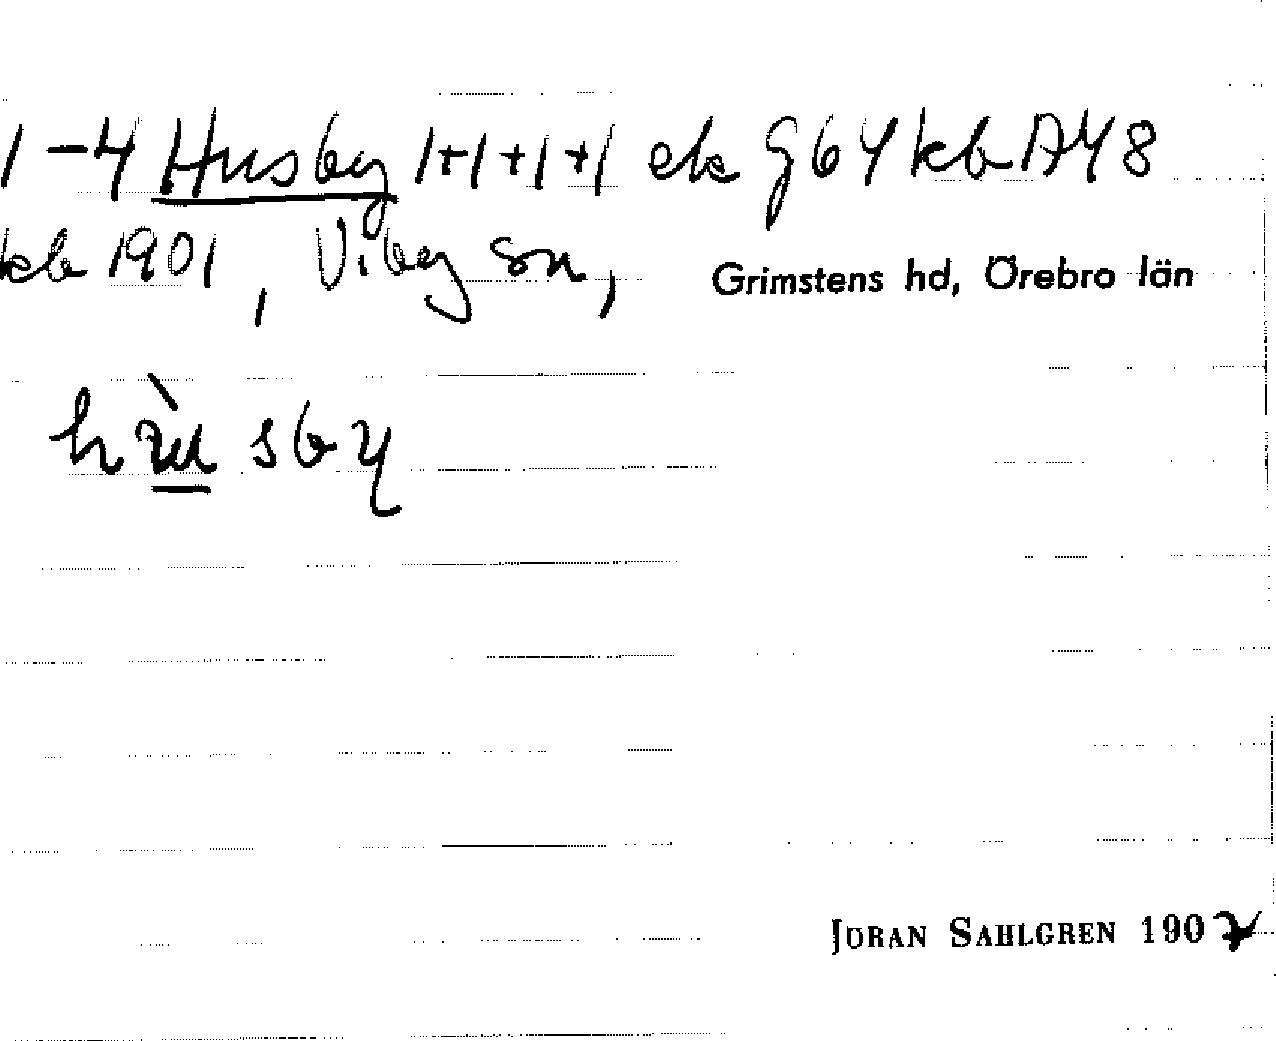 1-4 Husby 1+1+1+1 ek G64 kb A48
kb 1901, Viby sn, Grimstens hd, Örebro län
hùsby
JÖRAN SAHLGREN 1907